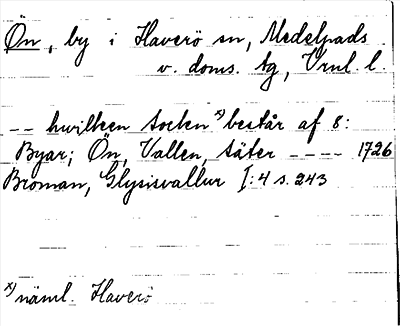 Ön, by i Haverö sn, Medelpads
v. doms. tg, Vrnl l.
-- hwilken socken x) består af 8:
Byar; Ön, Vallen, säter ---- 1726
Broman, Glysisvallur I:4 s. 243
x) näml. Haverö